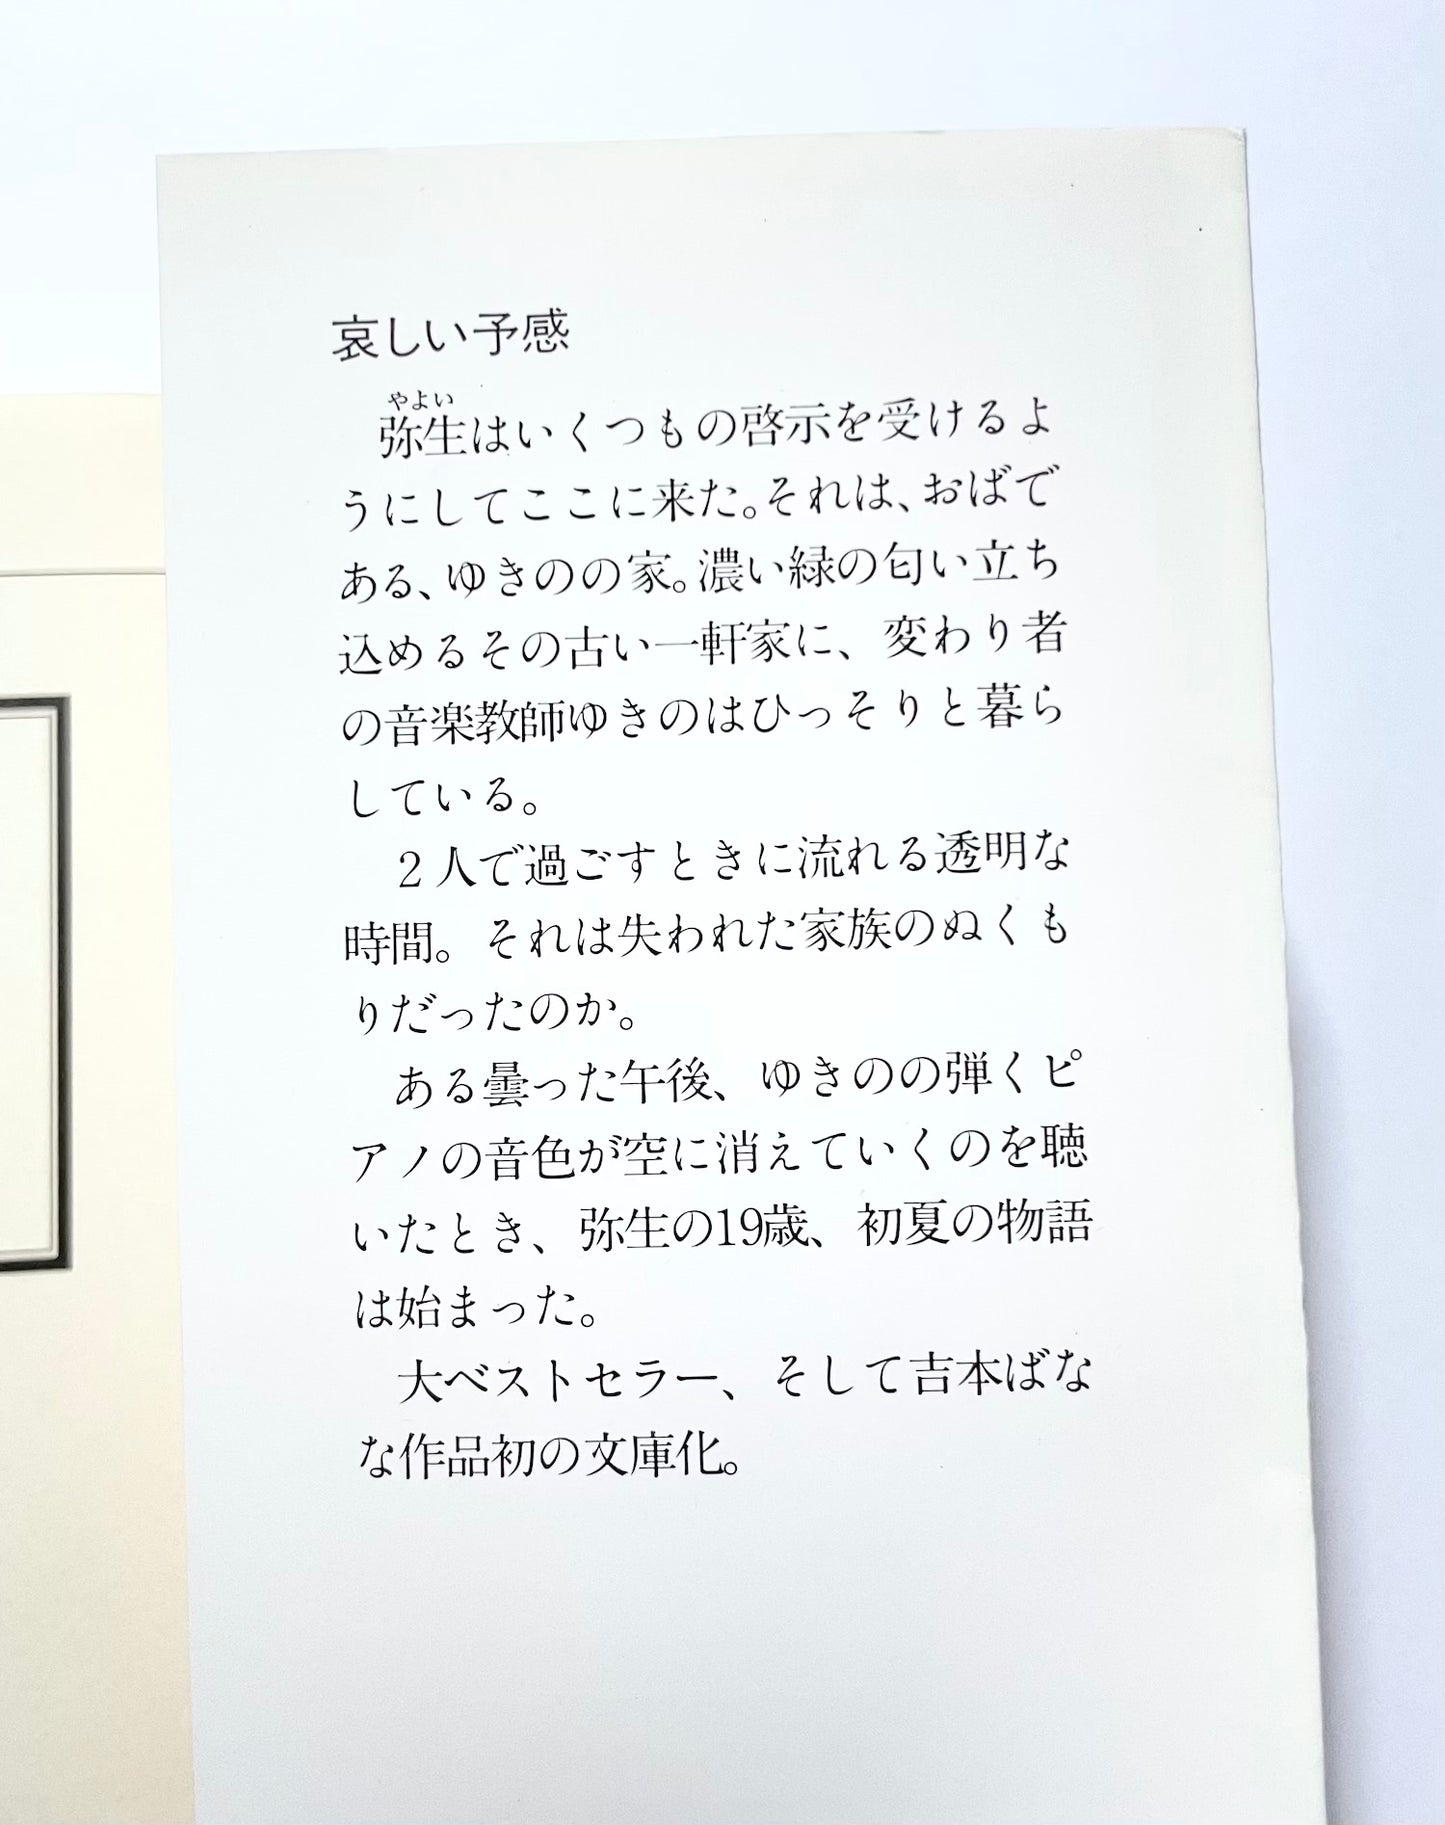 哀しい予感
やよい
弥生はいくつもの啓示を受けるよ
うにしてここに来た。それは、おばで
ある、ゆきのの家。濃い緑の匂い立ち
込めるその古い一軒家に、変わり者
の音楽教師ゆきのはひっそりと暮ら
している。
2人で過ごすときに流れる透明な
時間。それは失われた家族のぬくも
りだったのか。
ある曇った午後、ゆきのの弾くピ
アノの音色が空に消えていくのを聴
いたとき、弥生の19歳、初夏の物語
は始まった。
大ベストセラー、そして吉本ばな
な作品初の文庫化。